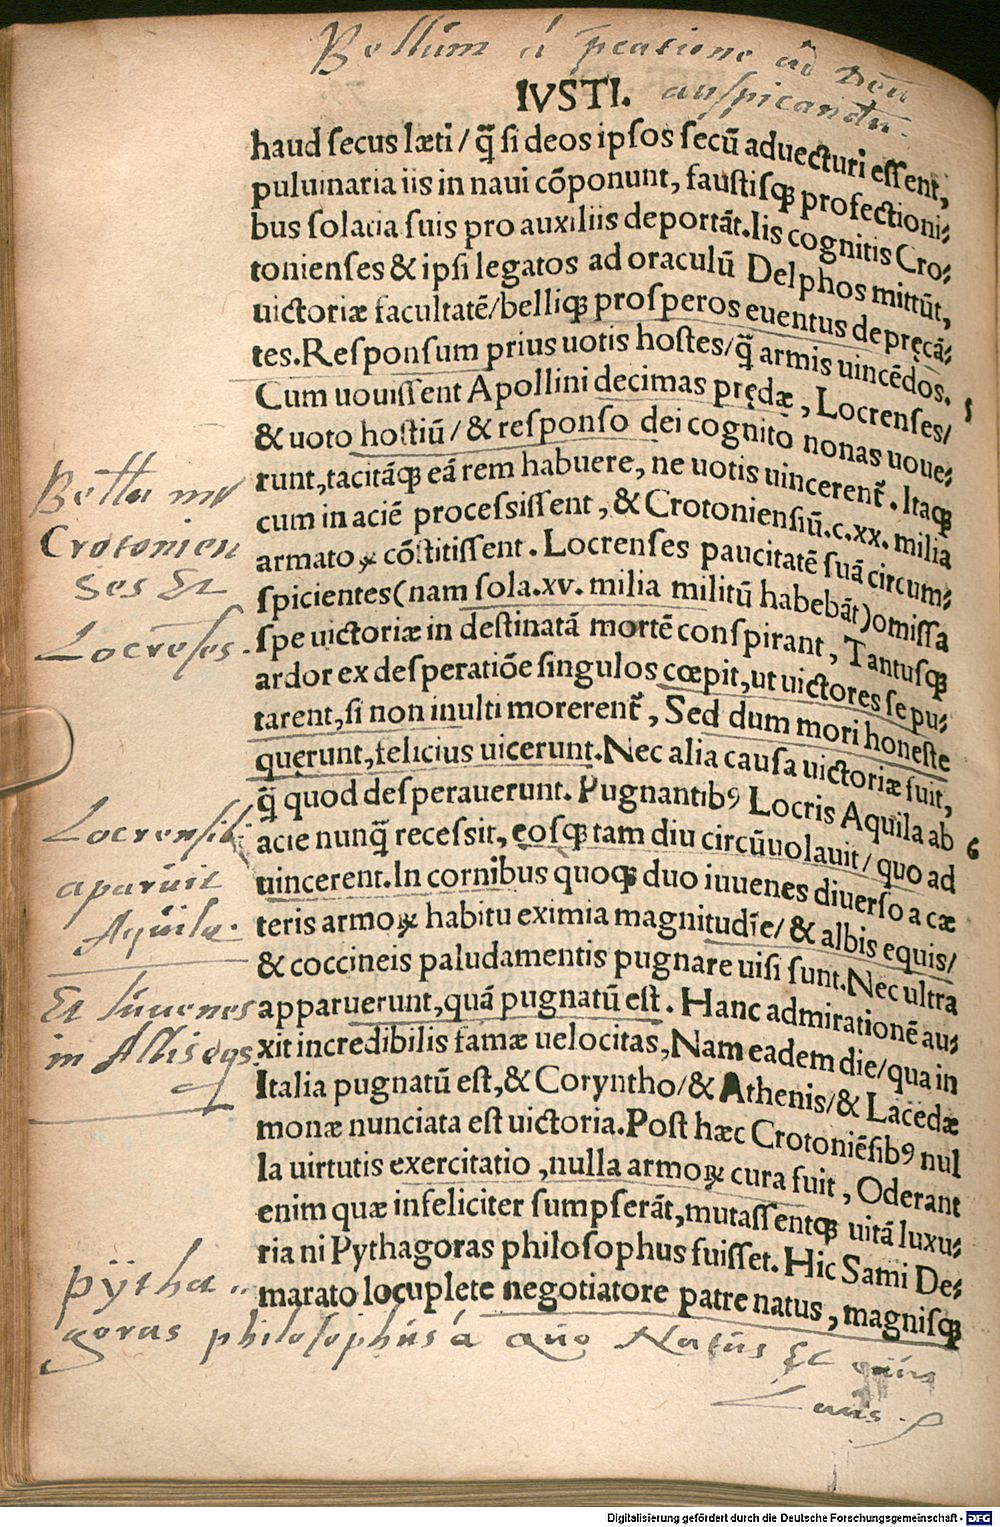 Bellum á p̄catione ad Deū
auspicandū.
IVSTI.
haud secus læti / q̃ si deos ipsos secũ aduecturi essent,
puluinaria iis in naui cōponunt, faustisq; profectioni⸗
bus solatia suis pro auxiliis deportãt. Iis cognitis Cro⸗
tonienses & ipsi legatos ad oraculũ Delphos mittũt,
uictoriæ facultatē / belliq; prosperos euentus depręcã⸗
tes. Responsum prius uotis hostes / q̃ armis uincēdos.
Cum uouissent Apollini decimas prędæ, Locrenses /
5
& uoto hostiũ / & responso dei cognito nonas uoue⸗
runt, tacitãq; eã rem habuere, ne uotis uincerent̃. Itaq;
cum in aciē processissent, & Crotoniensiũ .c.xx. milia
armatoꝝ cōstitissent. Locrenses paucitatē suã circum⸗
spicientes (nam sola .xv. milia militũ habebãt) omissa
spe uictoriæ in destinatã mortē conspirant, Tantusq;
ardor ex desperatiōe singulos cœpit, ut uictores se pu⸗
tarent, si non inulti morerent̃, Sed dum mori honeste
quęrunt, felicius uicerunt. Nec alia causa uictoriæ fuit,
q̃ quod desperauerunt. Pugnantibꝰ Locris Aquila ab
acie nunq̃ recessit, eosq; tam diu circũuolauit / quo ad
6
uincerent. In cornibus quoq; duo iuuenes diuerso a cæ
teris armoꝝ habitu eximia magnitudīe / & albis equis /
& coccineis paludamentis pugnare uisi sunt. Nec ultra
apparuerunt, quã pugnatũ est. Hanc admirationē au⸗
xit incredibilis famæ uelocitas, Nam eadem die / qua in
Italia pugnatũ est, & Coryntho / & Athenis / & Lacedæ
monæ nunciata est uictoria. Post hæc Crotoniēsibꝰ nul
la uirtutis exercitatio, nulla armoꝝ cura fuit, Oderant
enim quæ infeliciter sumpserãt, mutassentq; uitã luxu⸗
ria ni Pythagoras philosophus fuisset. Hic Sami De⸗
marato locuplete negotiatore patre natus, magnisq;
Crotonien
ses Et
Locrēses.
Locrensib.
aparuit
Aquila.
Et Iuuenes
in Albis eqs.
pÿtha
goras philosophus á quo Natus Et
Laus.
Digitalisierung gefördert durch die Deutsche Forschungsgemeinschaft - DFG